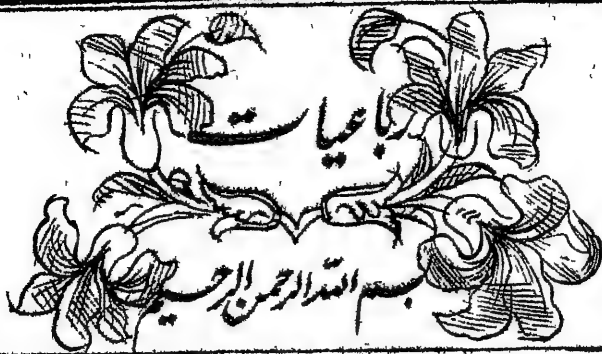 رباعیات
بسم الله الرحمن الرحیم